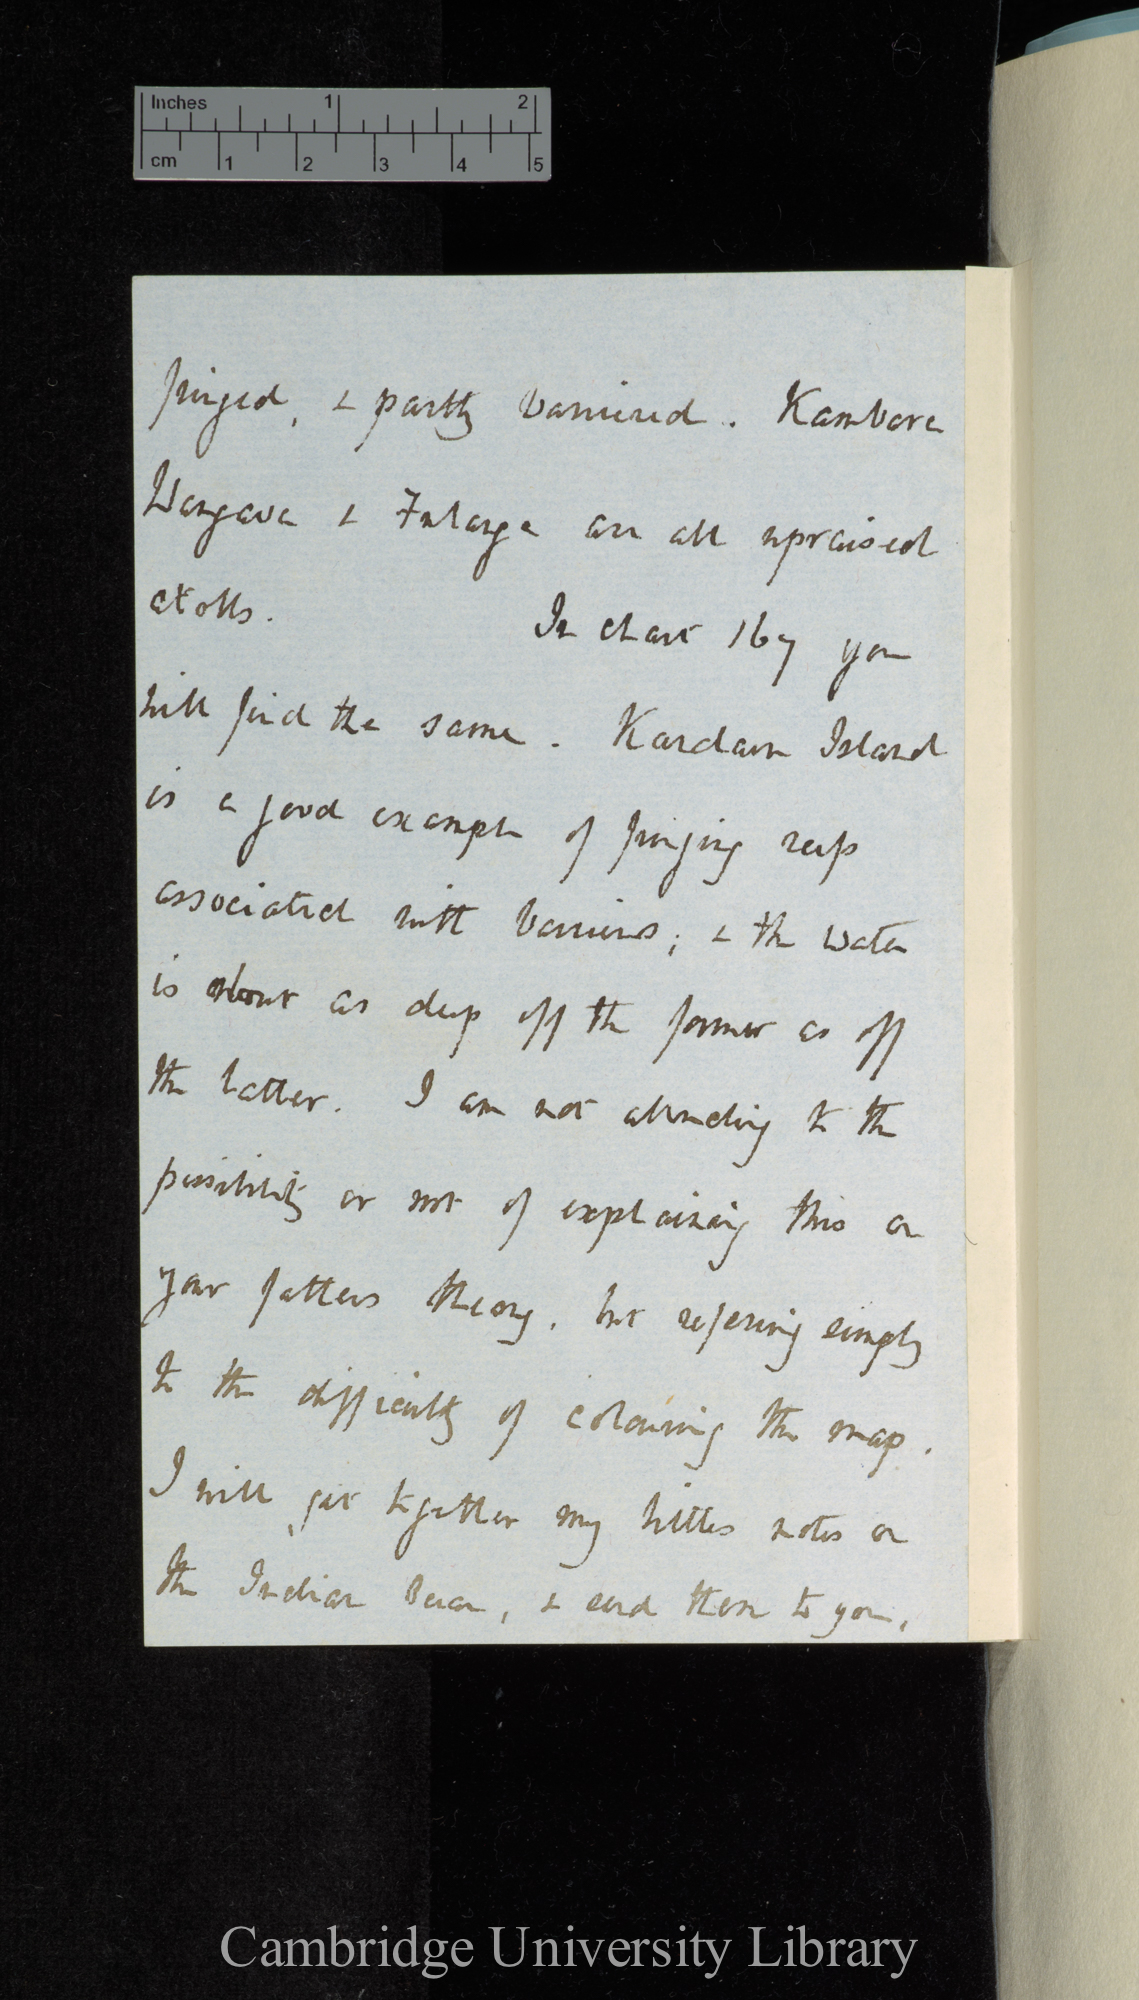 Inches 1 2
cm 1 2 3 4 5
fringed, & partly barriered. Kambara
Wangava & Fulanga are all upraised
atolls. In chart 167 you
will find the same. Kandavu Island
is a good example of fringing reefs
associated with barriers; & the water
is about as deep off the former as off
the latter. I am not alluding to the
possibility or not of explaining this on
your fathers theory, but refering simply
to the difficulty of colouring the map.
I will get together my little notes on
the Indian Ocean, & send them to you,
Cambridge University Library